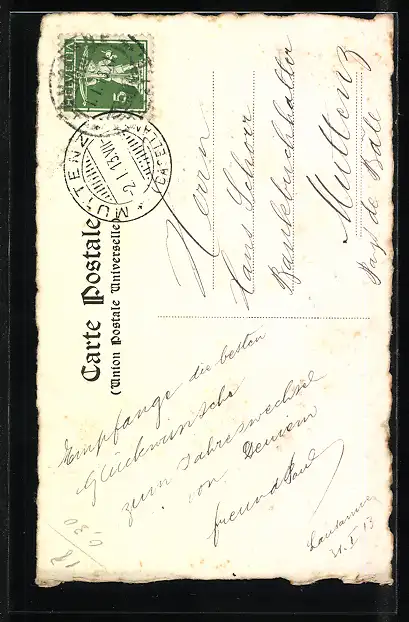 HELVETIA
5
MUTTENZ
-2.I.13.VIII
Carte Postale
(Union Postale Universelle)
Herrn
Hans Schorr
Bankbuchhalter
Muttenz
Pays de Bâle
Empfange die besten
Glückwünsche
zum Jahreswechsel
von Deinem
Freund Paul
Lausanne
31. I 13
18
0.30